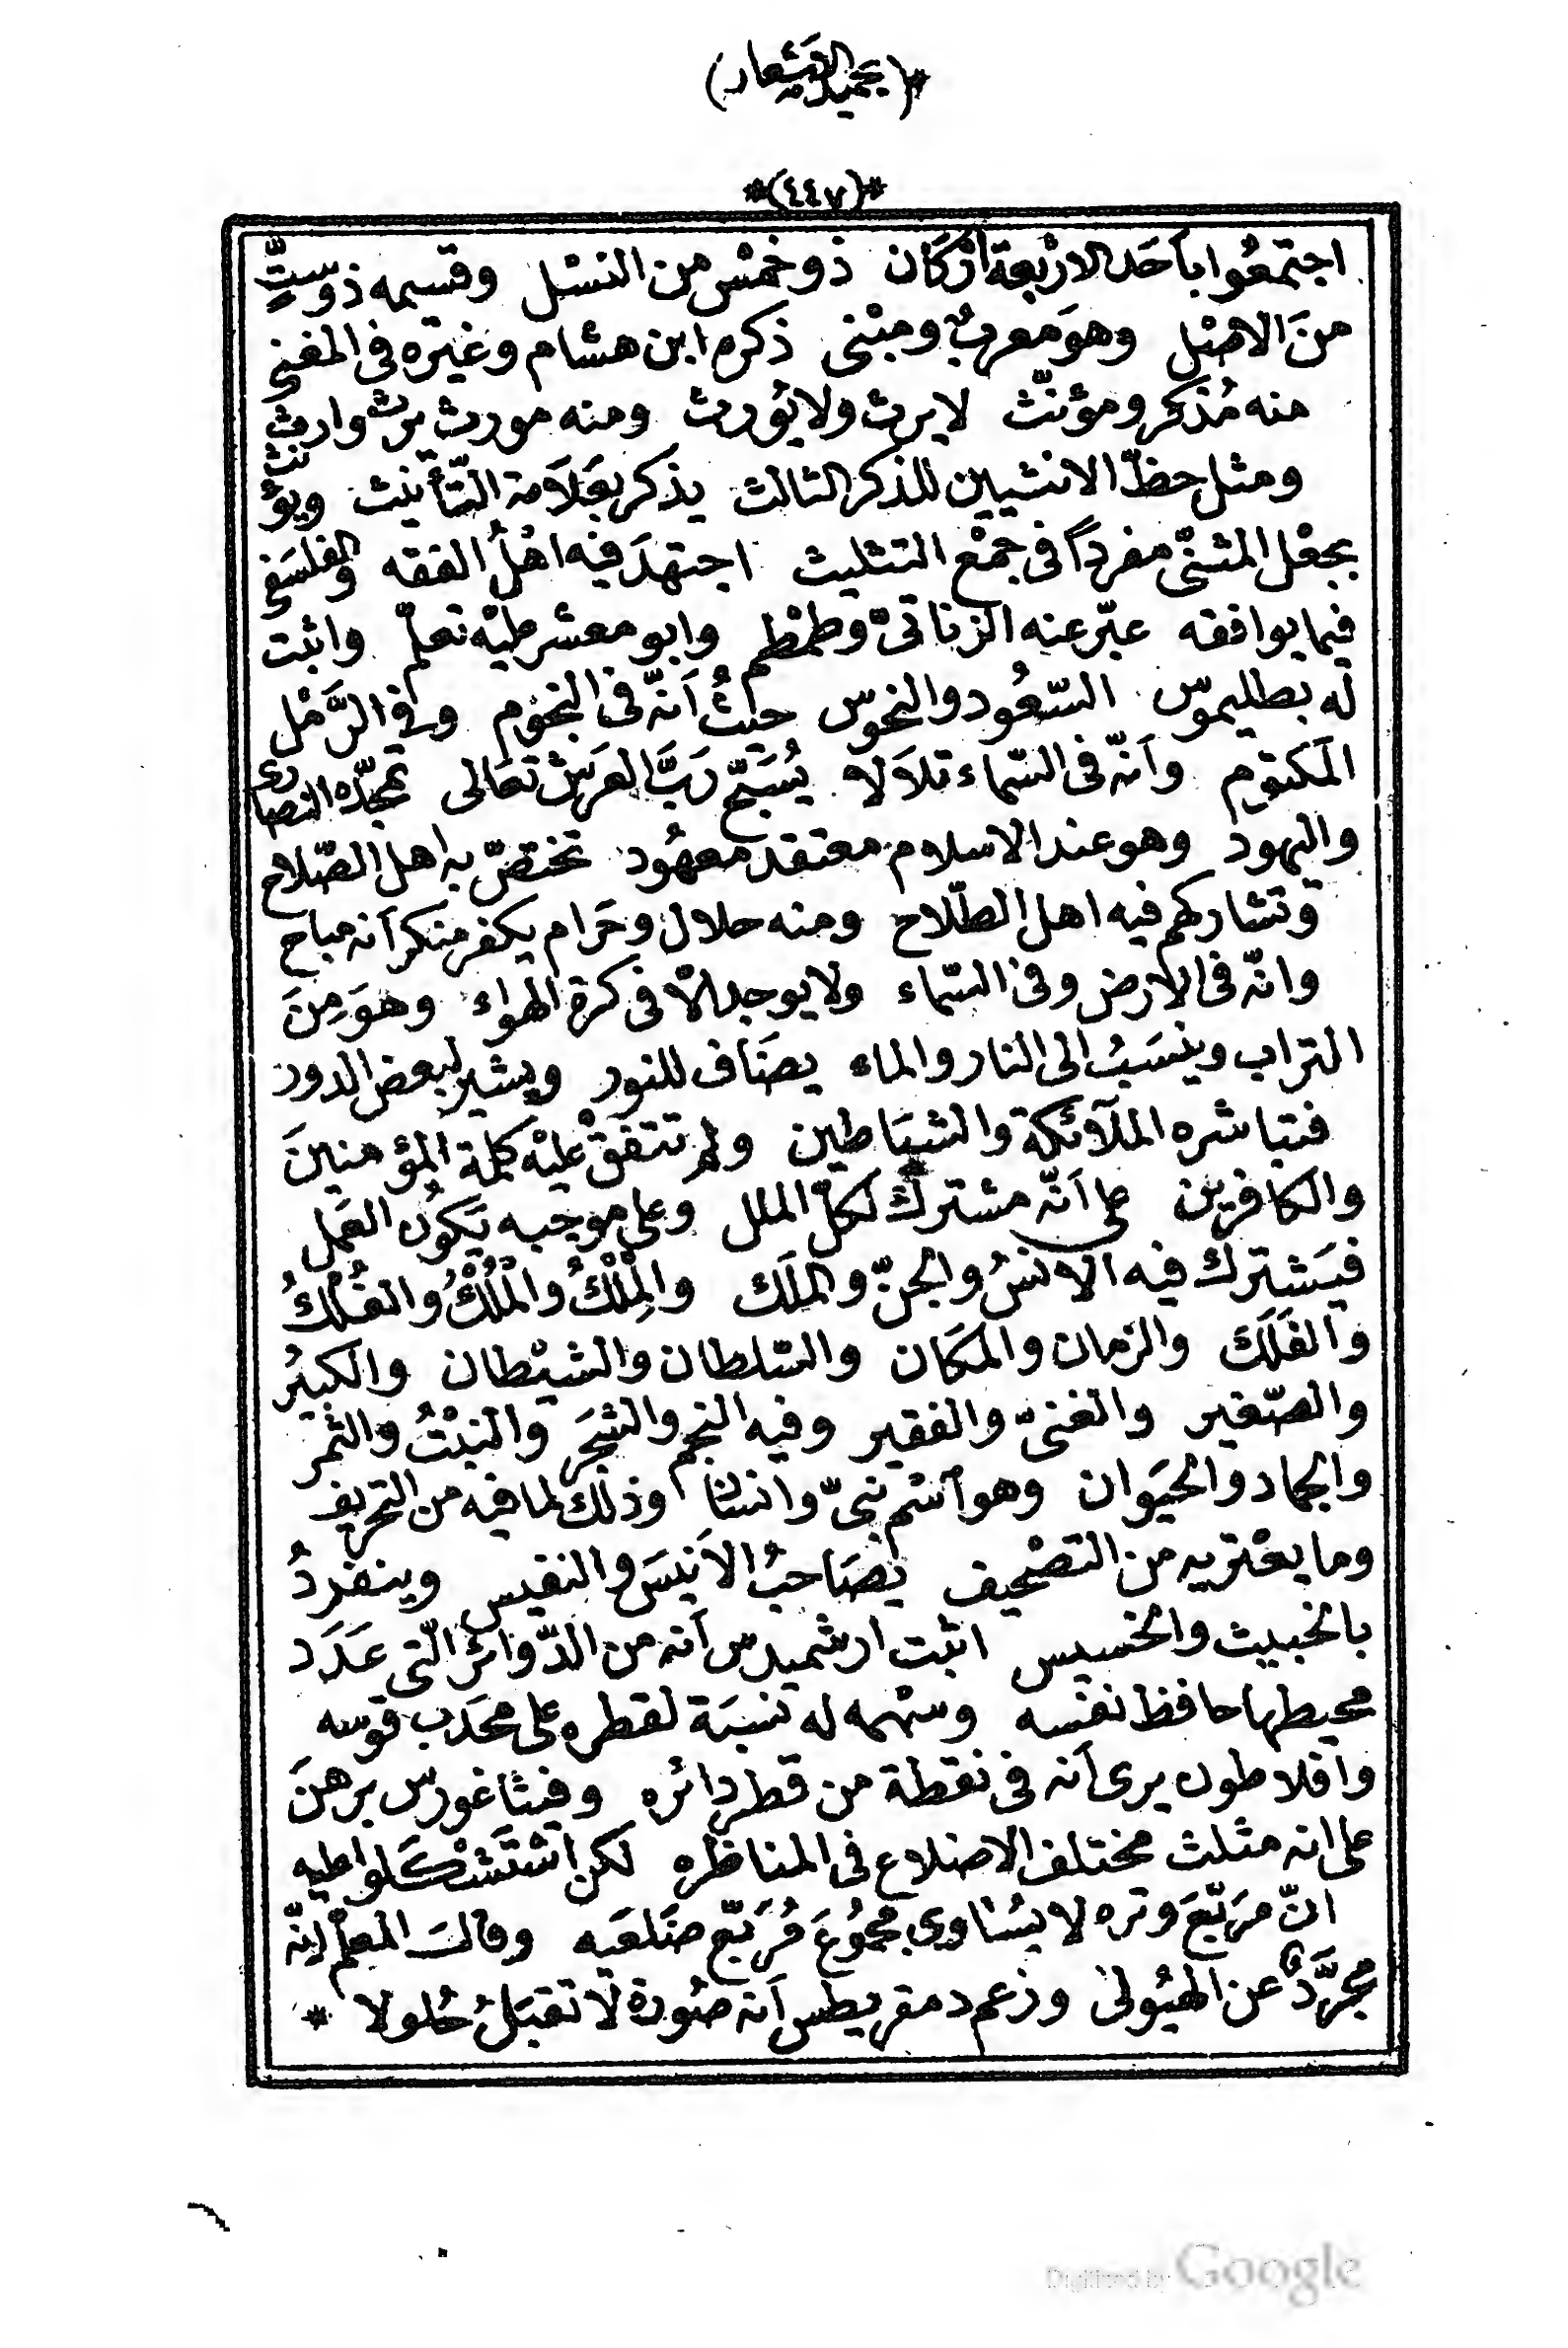 *(٤٤٧)*
اجتمعُوا بأَحَد الارْبعة ارْكَان ذو خمْس من النسْل وقسيمه ذو ستٍّ
منَ الاصْل وهوَ معربٌ ومبْنى ذكره ابن هشام وغيْره فى المغنى
منه مُذكر ومؤنّث لا يرث ولا يُورث ومنه مورث يرث وارث
ومثل حظّ الانثيين للذكر الثالث يذكر بعَلاَمة التّأنيث ويؤنث
بجعْل المثنّى مفرداً فى جمْع التثليث اجتهدَ فيه اهْلُ الفقه والفلسَفى
فيما يوافقه عبّر عنه الزناتىّ وطمْطم وابو معشر عليْه تعلّم واثبت
له بطليموس السّعُود والنحوس حيثُ أنّه فى النجوم وفى الرَّمْل
المكتوم وأنّه فى السّماء تلاَلا يُسَبّح رَبَّ العرَش تعَالى تمجّده النصارى
واليهود وهو عند الاسلام معتقد معهُود تختصّ به اهل الصّلاح
وتشاركهم فيه اهل الطّلاح ومنه حلال وحَرام يكفر منكر أنه مباح
وانّه فى الارض وفى السّماء ولا يوجد الاّ فى كرة الهواء وهوَ مِنَ
التراب وينسَبُ الى النار والماء يضَاف للنور ويشير لبعض الدور
فتباشره الملآئكة والشيَاطين ولم تتفقْ عليْه كلمة المؤمنينَ
والكافرين على أنّه مشترك لكلّ الملل وعلى موجبه يَكوُن العمَل
فيَشترك فيه الانسُ والجنّ والملَك والمِلْكُ والمُلْكُ والفُلْكُ
والفَلَكَ والزمان والمكَان والسّلطان والشيْطان والكبيُر
والصّغير والغنىّ والفقير وفيه النجم والشجَر والنبْتُ والثمر
والجماد والحيَوان وهو أسْم نبىّ وانسان وذلك لما فيه من التحريف
وما يعْتريه من التصْحيف يصَاحبُ الأنيسَ والنفيس وينفردُ
بالخبيث والخسيس اثبت ارشميدس أنه من الدّوائر الّتى عَدَد
محيطها حافظ نفسه وسْهمه له نسبَة لقطره على محدَب قوسه
وافلاطون يرى أنه فى نقطة من قطر دائره وفيثاغورس برهنَ
على انه مثلث مختلف الاضلاع فى المناظره لكن اسْتَشْكَلوا عليه
انّ مرَبّعَ وتره لا يسُاوى مجموُعَ مُرَبّع ضَلعَيه وقالَ المعلّم انّه
مجرَّد عن الهيُولى وزعم دمقريطس أنه صُورة لا تقبَلُ حُلولا *